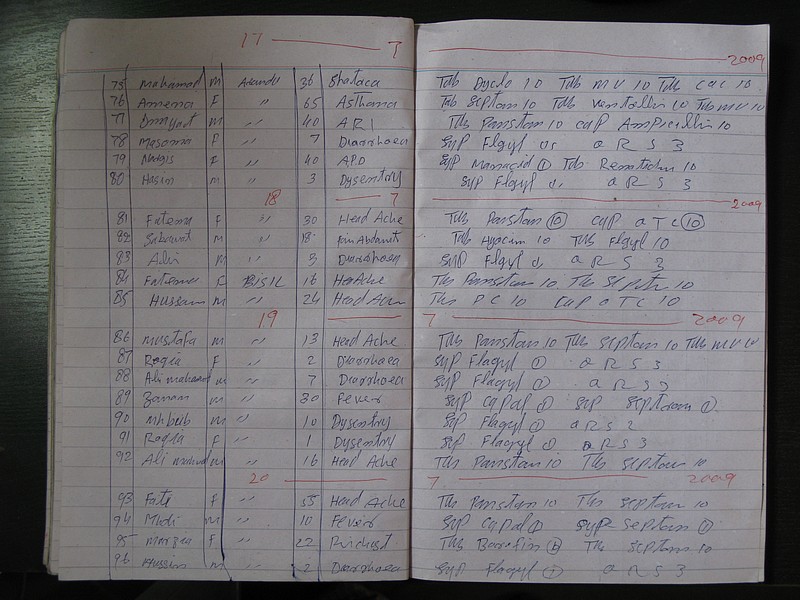 17 7 2009
75 Mahamad M 36 Tab Dyclo 10 Tab MV 10 Tab CAC 10
76 Amena F " 65 Asthama Tab Septam 10 Tab Ventollin 10 Tab MV 10
77 M " 40 ARI Tab Panstan 10 cap Ampicillin 10
78 Masoma F " 7 Diarrhoea Syp Flgyl ORS 3
79 Nargis F " 40 APD Syp Manacid ① Tab 10
80 Hasin M " 3 Dysentry Syp Flgyl ORS 3
18 7 2009
81 Fatema F " 30 Head Ache Tab Panstan ⑩ cap OTC ⑩
82 M " 18 Tab Hyocum 10 Tab Flgyl 10
83 Ali M " 3 Diarrhoea Syp Flgyl ORS 3
84 Fatema F BISIL 16 HeadAche Tab Panstan 10 Tab Septan 10
85 Hussain M " 24 Head Ache Tab PC 10 cap OTC 10
19 7 2009
86 Mustafa M " 13 Head Ache Tab Panstan 10 Tab Septam 10 Tab MV 10
87 Roqia F " 2 Diarrhoea Syp Flagyl ① ORS 3
88 Ali mahamad M " 7 Diarrhoea Syp Flagyl ① ORS 3
89 M " 30 Fever Syp Capal ① Syp Septram ①
90 M " 10 Dysentry Syp Flagyl ① ORS 2
91 Roqia F " 1 Dysentry Syp Flagyl ① ORS 3
92 Ali M " 16 Head Ache Tab Panstan 10 Tab Septam 10
20 7 2009
93 Fate F " 55 Head Ache Tab Panstan 10 Tab Septam 10
94 Mhdi M " 10 Fever Syp Capal ① Syp Septam ①
95 Marzea F " 22 Tab 10
96 Hussin M " 2 Diarrhoea Syp Flagyl ① ORS 3